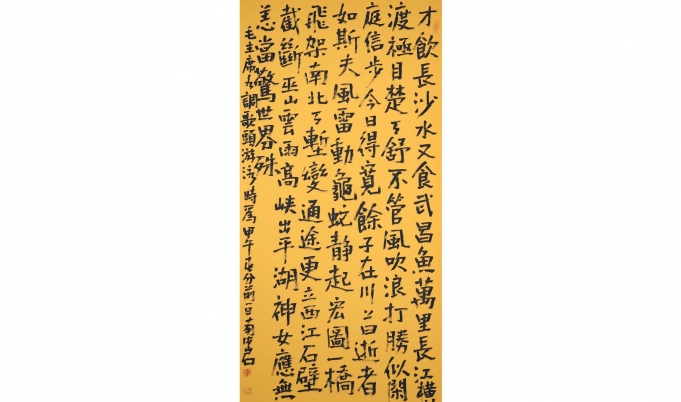 才飲長沙水又食武昌魚萬里長江橫
渡極目楚天舒不管風吹浪打勝似閑
庭信步今日得寬餘子在川上曰逝者
如斯夫風雷動龜蛇静起宏圖一橋
飛架南北天塹變通途更立西江石壁
截斷巫山雲雨高峽出平湖神女應無
恙當驚世界殊
毛主席水調歌頭游泳時爲甲午分前一日